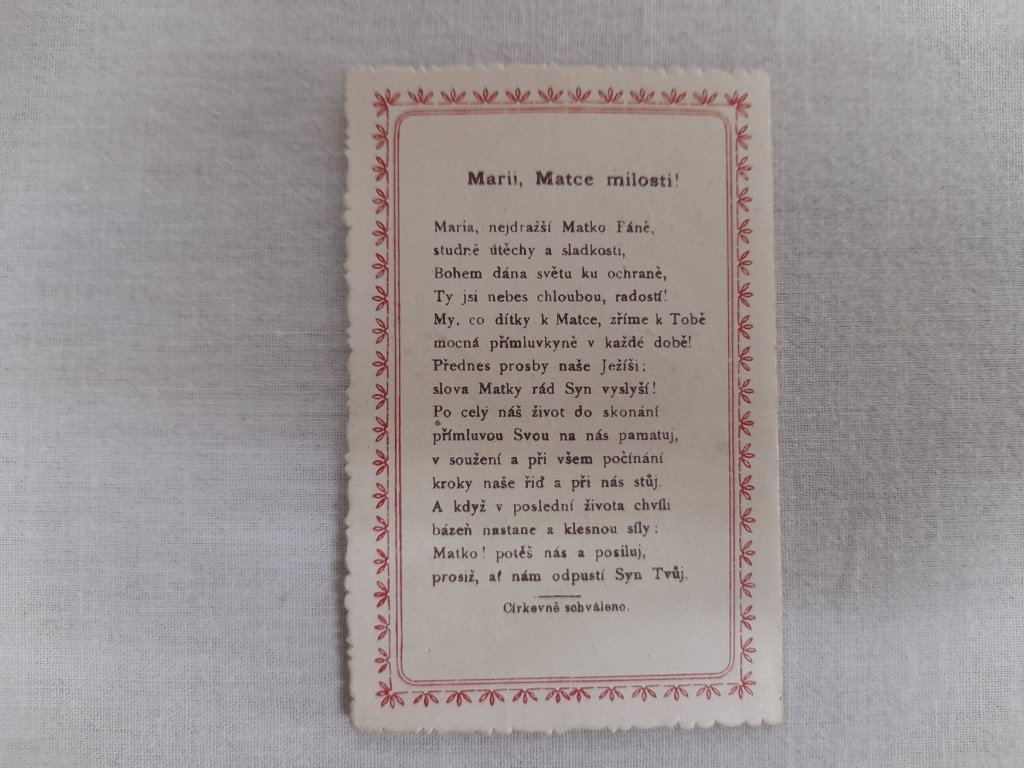 Marii, Matce milosti!
Maria, nejdražší Matko Páně,
studně útěchy a sladkosti,
Bohem dána světu ku ochraně,
Ty jsi nebes chloubou, radostí!
My, co dítky k Matce, zříme k Tobě
mocná přímluvkyně v každé době!
Přednes prosby naše Ježíši;
slova Matky rád Syn vyslyší!
Po celý náš život do skonání
přímluvou Svou na nás pamatuj,
v soužení a při všem počínání
kroky naše řiď a při nás stůj.
A když v poslední života chvíli
bázeň nastane a klesnou síly:
Matko! potěš nás a posiluj,
prosiž, ať nám odpustí Syn Tvůj.
Církevně schváleno.